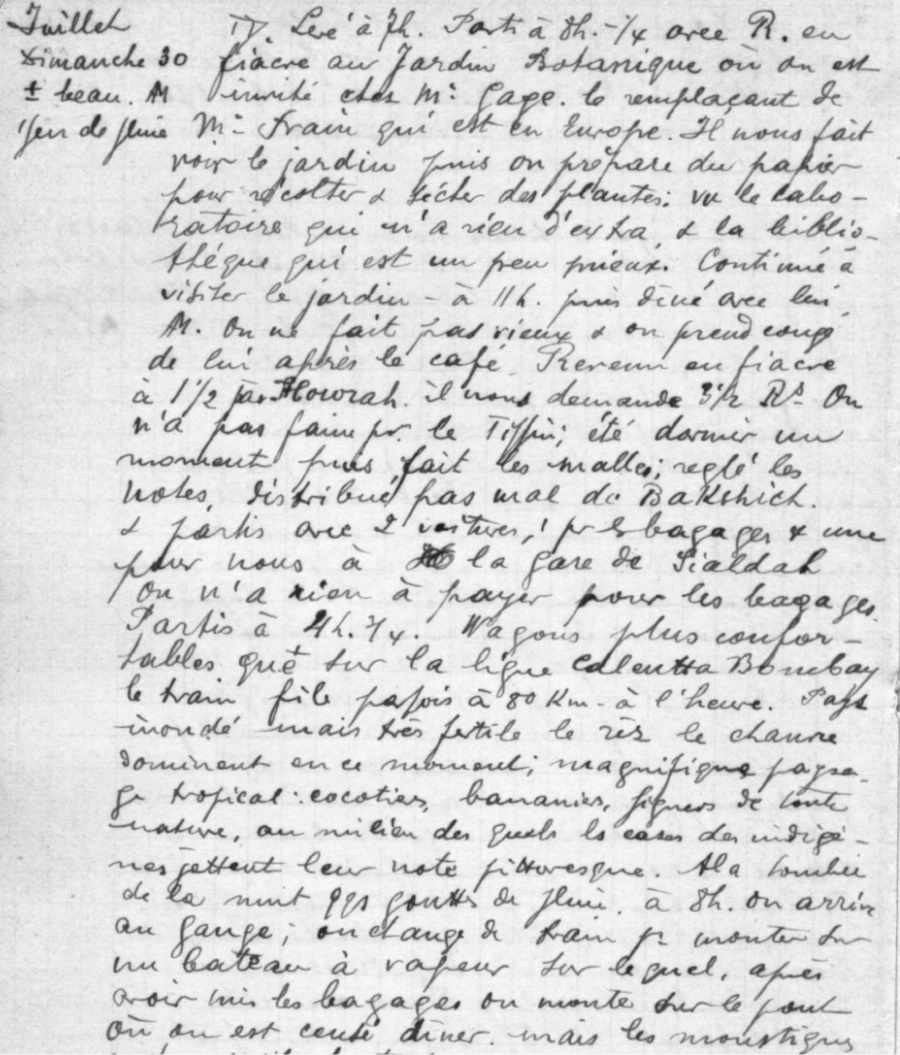 Juillet
Dimanche 30
± beau. M
peu de pluie
IV. Levé à 7h. Parti à 8h.-1/4 avec R. en
fiacre au Jardin Botanique où on est
invité chez Mr Gage. le remplaçant de
Mr Prain qui est en Europe. Il nous fait
voir le jardin puis on prépare du papier
pour récolter & sécher des plantes; vu le labo-
ratoire qui n'a rien d'extra, & la biblio-
thèque qui est un peu mieux. Continué à
visiter le jardin - à 11h. puis dîné avec lui
M. On ne fait pas vieux & on prend congé
de lui après le café. Revenu en fiacre
à 1 1/2 par Howrah. il nous demande 3 1/2 Rs. On
n'a pas faim pr. le Tiffin; été dormir un
moment puis fait les malles; reglé les
notes, distribué pas mal de Bakshich.
& partis avec 2 voitures, 1 pr les bagages & une
pour nous à la gare de Sialdah
On n'a rien à payer pour les bagages.
Partis à 4h. 3/4. Wagons plus confor-
tables que sur la ligne Calcutta Bombay
le train file parfois à 80 Km - à l'heure. Pays
inondé mais très fertile le riz le chanvre
dominent en ce moment; magnifique paysa-
ge tropical: cocotiers, bananiers, figuiers de toute
nature, au milieu des quels les cases des indigè-
nes jettent leur note pittoresque. A la tombée
de la nuit qqs gouttes de pluie. à 8h. on arrive
au Gange; on change de train pr monter sur
un bateau à vapeur sur lequel, après
avoir mis les bagages on monte sur le pont
où on est censé dîner. mais les moustiques